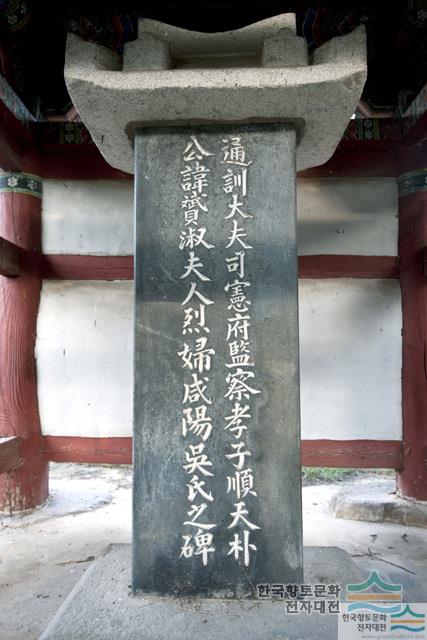 通訓大夫司憲府監察孝子順天朴
公諱贇淑夫人烈婦咸陽吳氏之碑
한국향토문화
전자대전
한국향토문화
전자대전